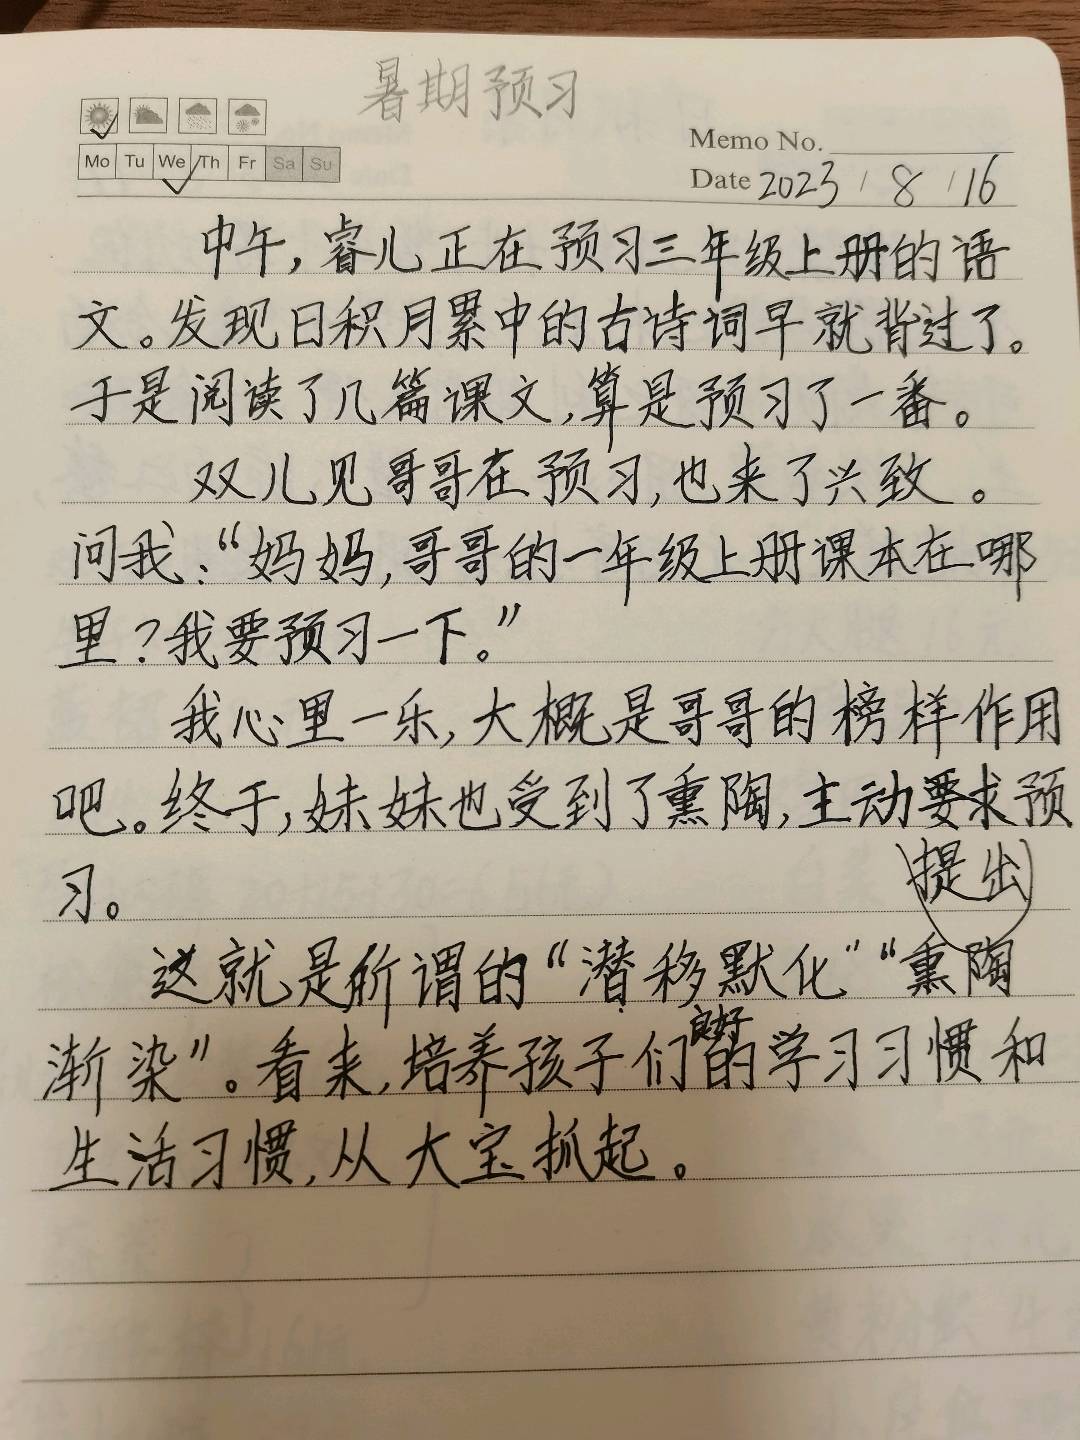 暑期预习
Memo No.
Mo Tu We Th Fr Sa Su
Date 2023 / 8 / 16
中午,睿儿正在预习三年级上册的语
文。发现日积月累中的古诗词早就背过了。
于是阅读了几篇课文,算是预习了一番。
双儿见哥哥在预习,也来了兴致。
问我:“妈妈,哥哥的一年级上册课本在哪
里?我要预习一下。”
我心里一乐,大概是哥哥的榜样作用
吧。终于,妹妹也受到了熏陶,主动要求预
习。
提出
这就是所谓的“潜移默化”“熏陶
良好
渐染”。看来,培养孩子们的学习习惯和
生活习惯,从大宝抓起。